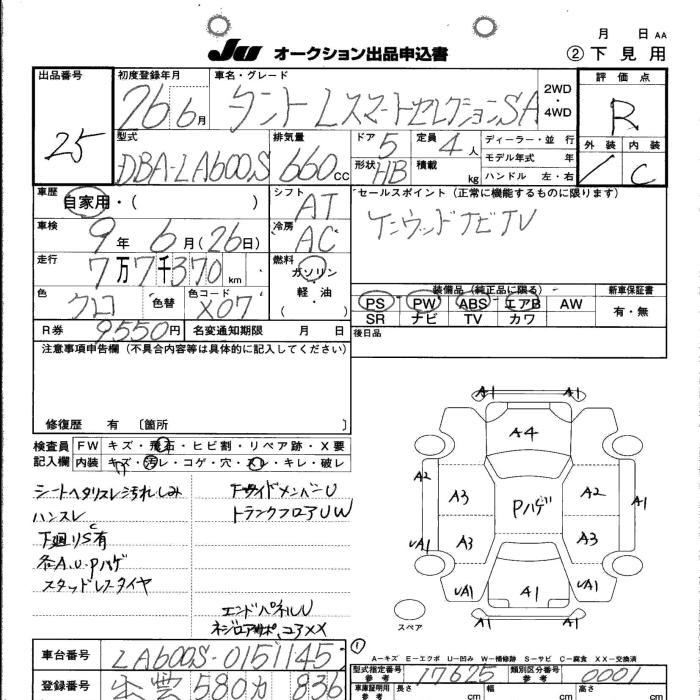 月 日 AA
JU オークション出品申込書 ②下見用
出品番号 25
初度登録年月 26 6月
車名・グレード タント Lスマートセレクション SA
2WD・4WD
評価点 R
型式 DBA-LA600S
排気量 660cc
ドア 5
形状 HB
定員 4人
積載 kg
ディーラー・並行
モデル年式 年
ハンドル 左・右
外装 内装 C
車歴 自家用・( )
シフト AT
セールスポイント(正常に機能するものに限ります)
ケンウッドナビTV
車検 9年 6月(26日)
冷房 AC
走行 7万7千370km
燃料 ガソリン・軽油・( )
色 クロ 色替 色コード X07
装備品(純正品に限る)
PS PW ABS エアB AW
SR ナビ TV カワ
新車保証書 有・無
R券 9550円 名変通知期限 月 日
後日品
注意事項申告欄(不具合内容等は具体的に記入してください)
修復歴 有 〔箇所 〕
検査員記入欄 FW キズ・飛石・ヒビ割・リペア跡・X要
内装 キズ・汚レ・コゲ・穴・スレ・キレ・破レ
シートヘタリスレ汚れしみ
ハンスレ
下廻りS有
各A.U.Pハゲ
スタッドレスタイヤ
FサイドメンバーU
トランクフロアUW
エンドパネルU
A1 A1
A4
A2 A3 Pハゲ A2 A1
UA1 A3 A3
UA1 A1 UA1
A1 A1
スペア
A-キズ E-エクボ U-凹み W-補修跡 S-サビ C-腐食 XX-交換済
車台番号 LA600S-0151145
型式指定番号 参考 17625 類別区分番号 参考 0001
登録番号 出雲 580 カ 836
車庫証明用 参考 長さ cm 幅 cm 高さ cm